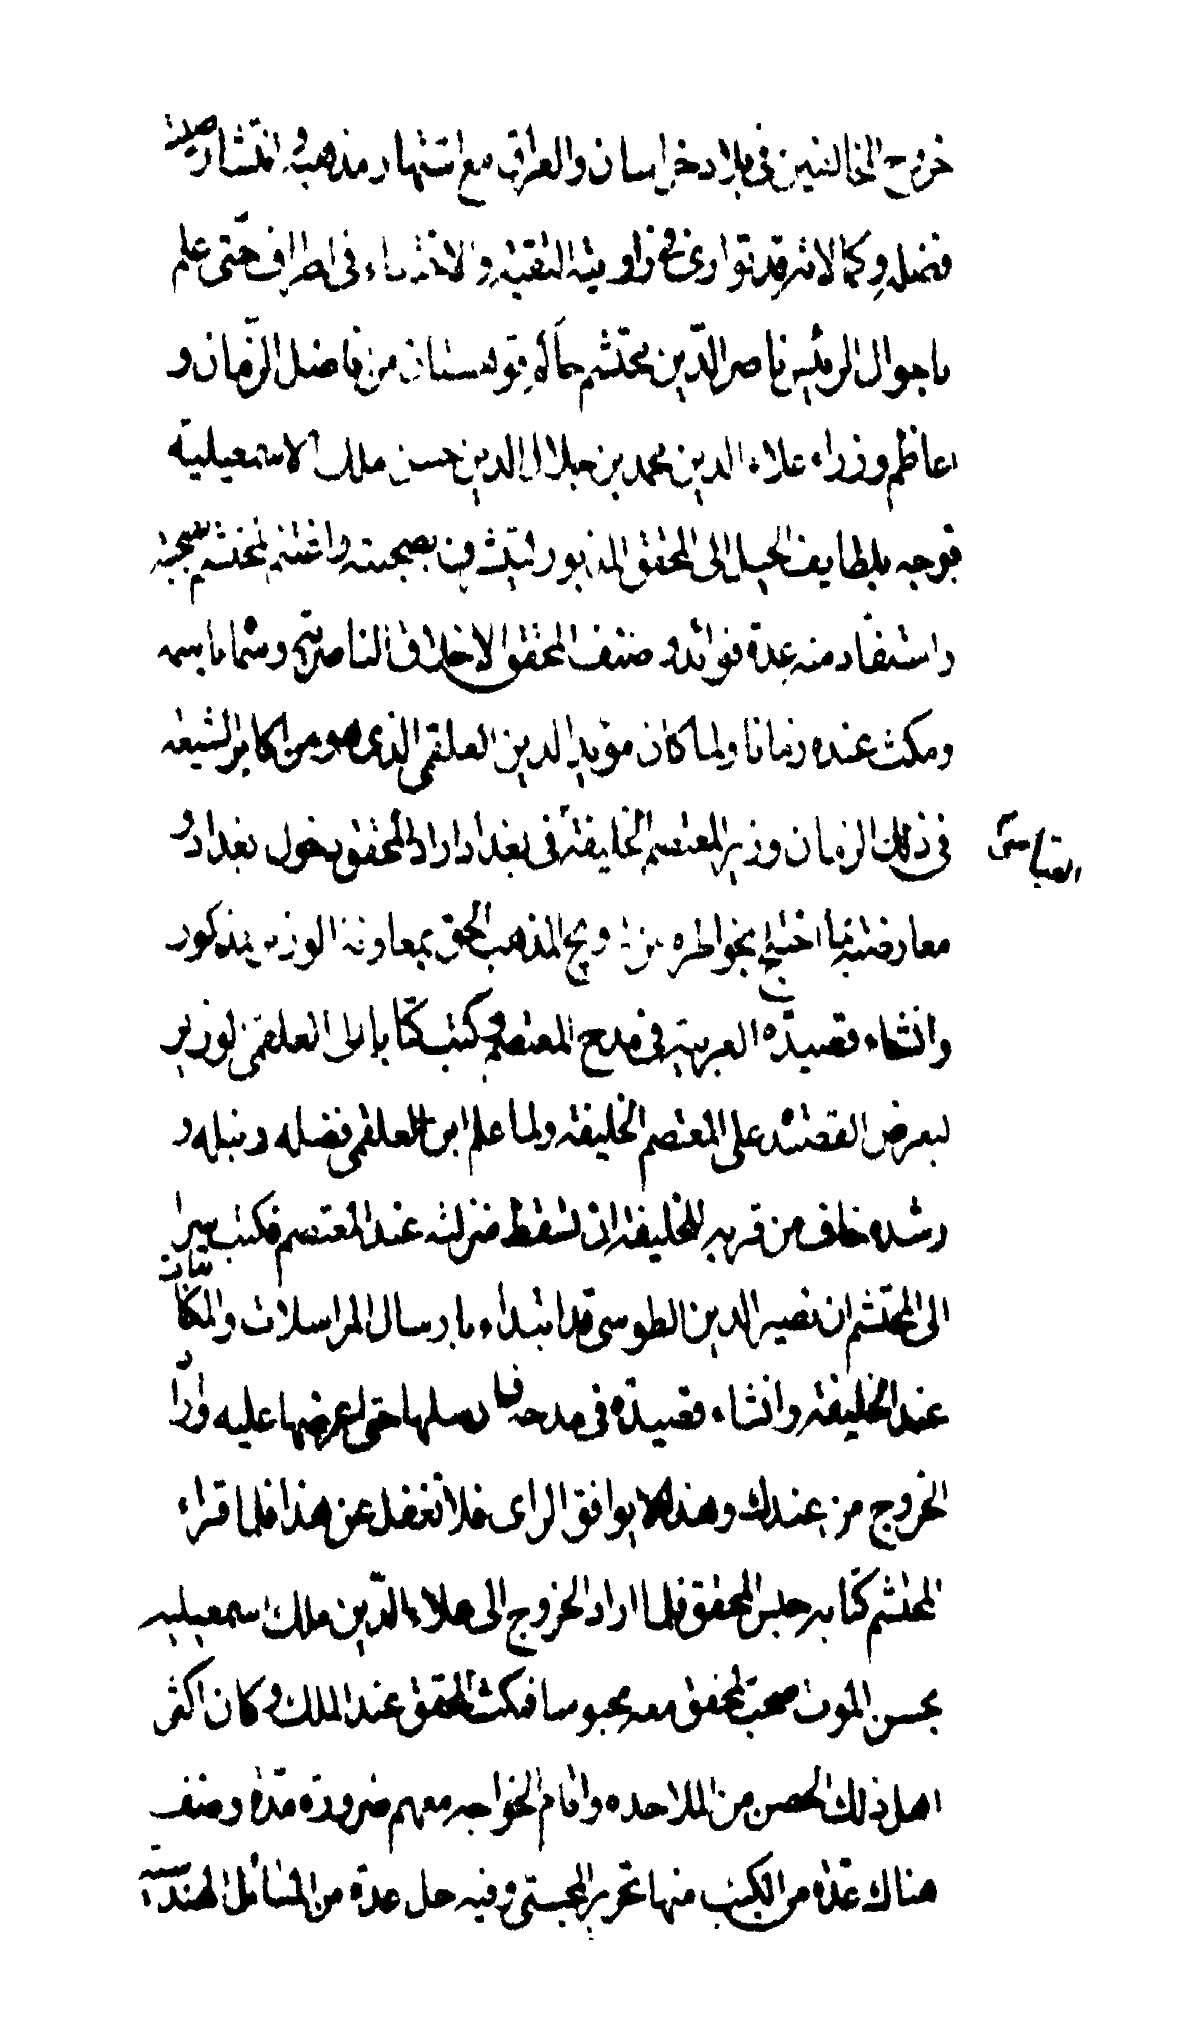 خروج المخالفين في بلاد خراسان والعراق مع اشتهار مذهبه وانتشار صيت
فضله وكمالاته قد توارى في زاوية التقية والاختفاء في اطراف حتى علم
باحوال الرئيس ناصر الدين محتشم حاكم قوهستان من فاضل الزمان و
اعاظم وزراء علاء الدين محمد بن جلال الدين حسن ملك الاسمعيلية
فوجه بلطايف الحيل الى المحقق المذبور ليتشرف بصحبته واغتنم المحتشم صحبته
واستفاد منه عدة فوائد وصنف المحقق الاخلاق الناصرية وسماها باسمه
ومكث عنده زمانا ولما كان مؤيد الدين العلقمي الذي هو من اكابر الشيعة
في ذلك الزمان وزير المعتصم الخليفة في بغداد اراد المحقق دخول بغداد و
العباسي
معارضته بما اختلج بخواطره من ترويج المذهب الحق بمعاونة الوزير المذكور
وانشاء قصيدة العربية في مدح المعتصم وكتب كتابا الى العلقمي الوزير
ليعرض القصيدة على المعتصم الخليفة ولما علم ابن العلقمي فضله ونبله و
رشده خاف من قربه للخليفة ان تسقط منزلته عند المعتصم فكتب سرا
الى المحتشم ان نصير الدين الطوسي قد ابتداء بارسال المراسلات والمكاتبات
عند الخليفة وانشاء قصيدة في مدحه وارسلها حتى اعرضها عليه واراد
الخروج من عندك وهذا لا يوافق الراى فلا تغفل عن هذا فلما قراء
المحتشم كتابه حبس المحقق فلما اراد الخروج الى علاء الدين ملك اسمعيلية
بحسن الموت صحب المحقق معه محبوسا فمكث المحقق عند الملك وكان اكثر
اهل ذلك الحصن من الملاحده واقام الخواجه معهم ضرورة مدة وصنف
هناك عدة من الكتب منها تحرير المجستى وفيه حل عدة من المسائل الهندسية